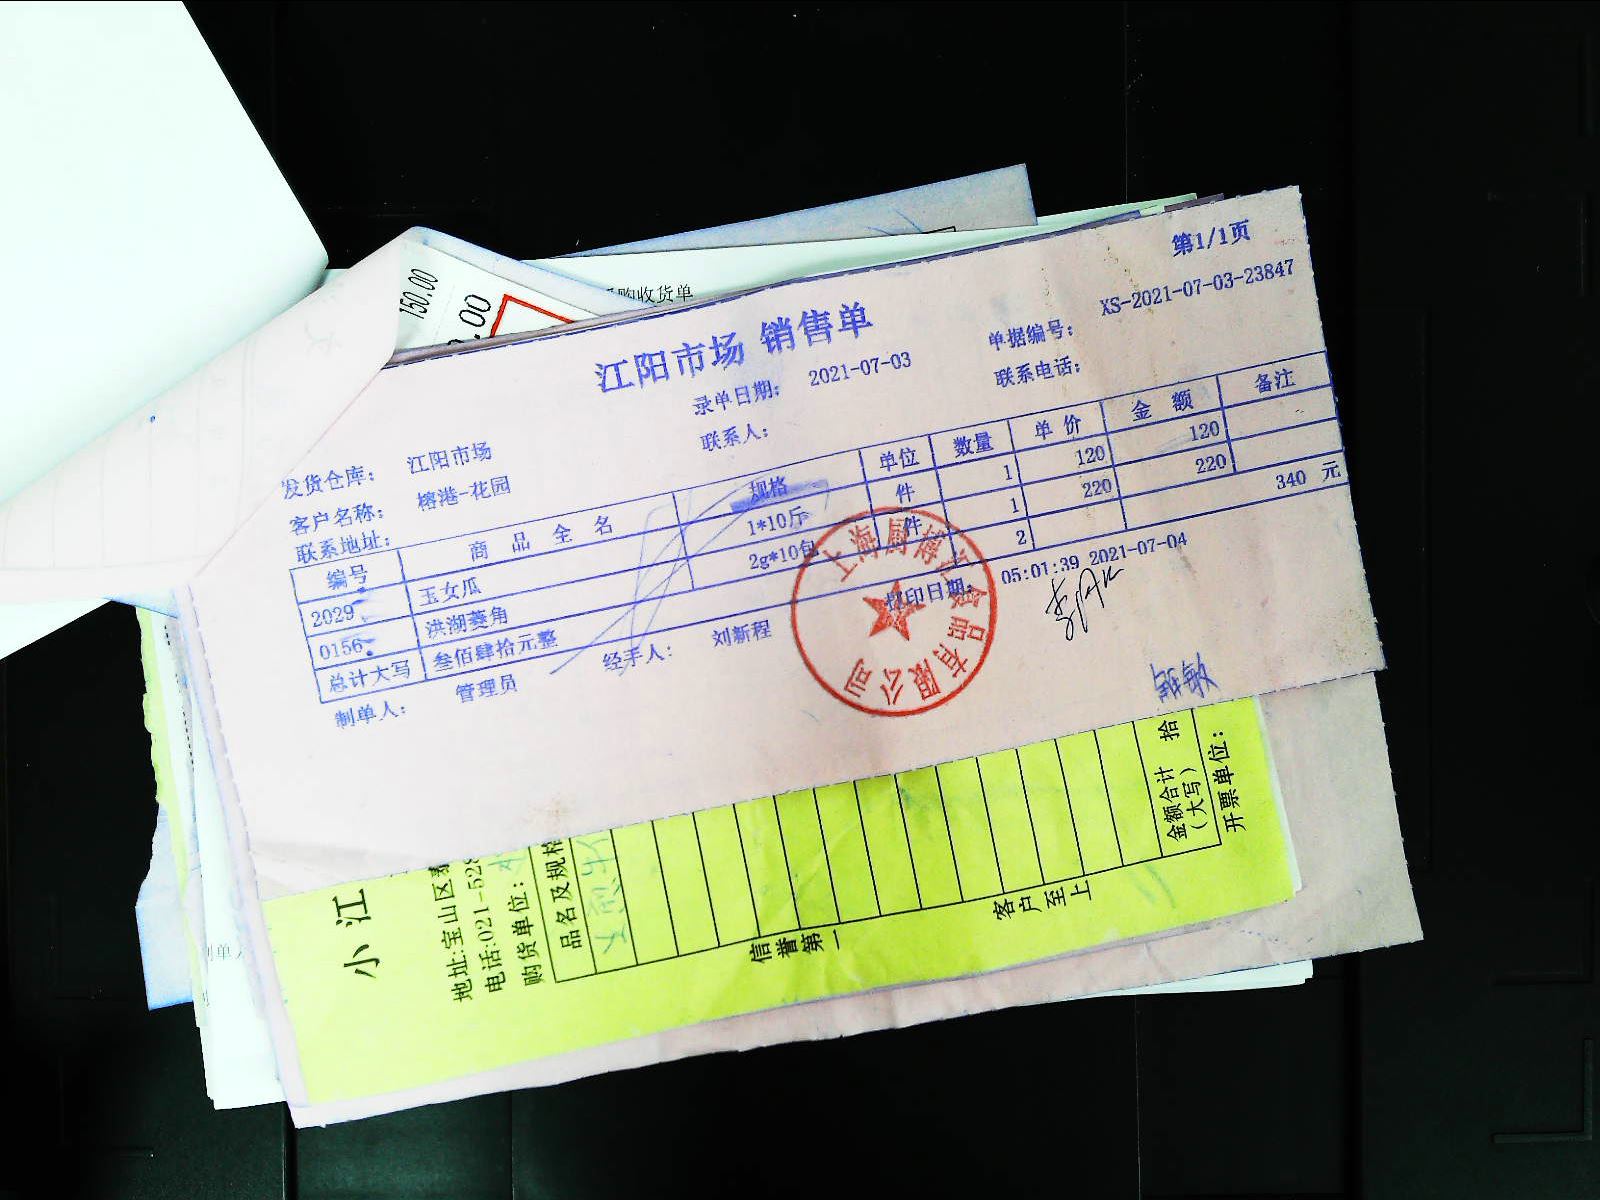 150.00
购收货单
第1/1页
江阳市场 销售单
单据编号: XS-2021-07-03-23847
录单日期: 2021-07-03
联系电话:
联系人:
发货仓库: 江阳市场
客户名称: 榕港-花园
联系地址:
编号 商品全名 规格 单位 数量 单价 金额 备注
2029 玉女瓜 1*10斤 件 1 120 120
0156 洪湖菱角 2g*10包 件 1 220 220
总计大写 叁佰肆拾元整 2 340 元
制单人: 管理员 经手人: 刘新程 打印日期: 05:01:39 2021-07-04
食品有限公司
小江
地址:宝山区
电话:021-528
购货单位:
品名及规格
金额合计(大写) 拾
开票单位:
信誉第一
客户至上
制单人